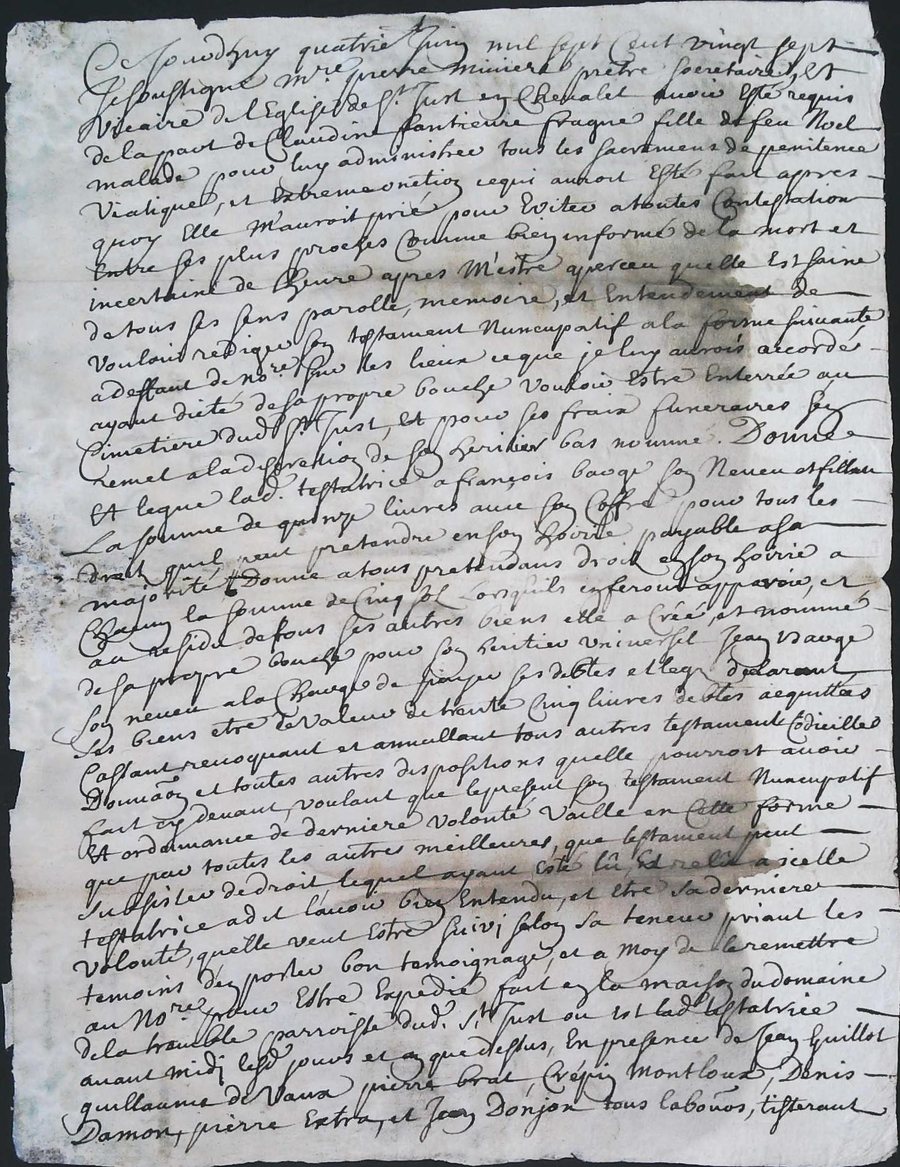 Ce Jourdhuy quatrie Juin mil sept Cent vingt sept
Je soustigne mre pierre miniere prêtre secretaire et
Vicaire de l'Eglise de St Just en Chevalet avoir Esté requis
de la part de Claudine fragne fille de feu Noel
malade pour luy administrer tous les sacremens de penitence
Viatique, et Extremeonction cequi auroit Esté fait apres
quoy Elle M'auroit prié pour Eviter a toutes Contestation
Entre ses plus proches Comme bien informé de la mort et
incertaine de l'heure apres M'estre aperceu quelle Est saine
de tous ses sens parolle, memoire, et Entendement de
Vouloir rediger son testament Nuncupatif a la forme suivante
a deffaut de Nore sur les lieux ceque je luy aurois accordé
ayant dicté de sa propre bouche Vouloir Estre Enterrée au
Cimetiere dud. St Just, Et pour ses fraix funeraires sen
remet a la discretion de son heritier bas nommé. Donne
Et legue lad. testatrice a françois bauge son Neveu et fillau
La somme de quinze livres avec son Coffre pour tous les
droit quil peut pretendre en son hoirie payable a sa
majorité Donne a tous pretendans droit en son hoirie a
Chacun la somme de Cinq sol Lorsquils en feront apparoir, et
au residu de tous ses autres biens elle a Créé, et nommé
de sa propre bouche pour son heritier universel Jean bauge
son neveu a la Charge de paijer ses debtes et legs declarant
ses biens etre de Valeur de trente Cinq livres debtes acquittées
Cassant revoquant et annullant tous autres testament Codicilles
Donnaon et toutes autres dispositions quelle pourroit avoir
fait cy devant, voulant que le present son testament Nuncupatif
Et ordonnance de derniere volonté Vaille en Cette forme
que par toutes les autres meilleures, que testament peut
subsister de droit, lequel ayant Esté lû, Et relû a icelle
testatrice a dit l'avoir bien Entendu, et Etre sa derniere
Volonté, quelle veut Estre suivi selon sa teneur priant les
temoins d'en porter bon temoignage, et a Moy de le remettre
au Nore pour Estre Expedié fait en la maison du domaine
de la trouble parroisse dud. St Just ou est lad. testatrice
avant midi lesd. jours et an que dessus, En presence de Jean Guillot
guillaume de Vaux pierre brat, Crépin Montloux, Denis
Damon, pierre Extra, et Jean Donjon tous labors, tisserant